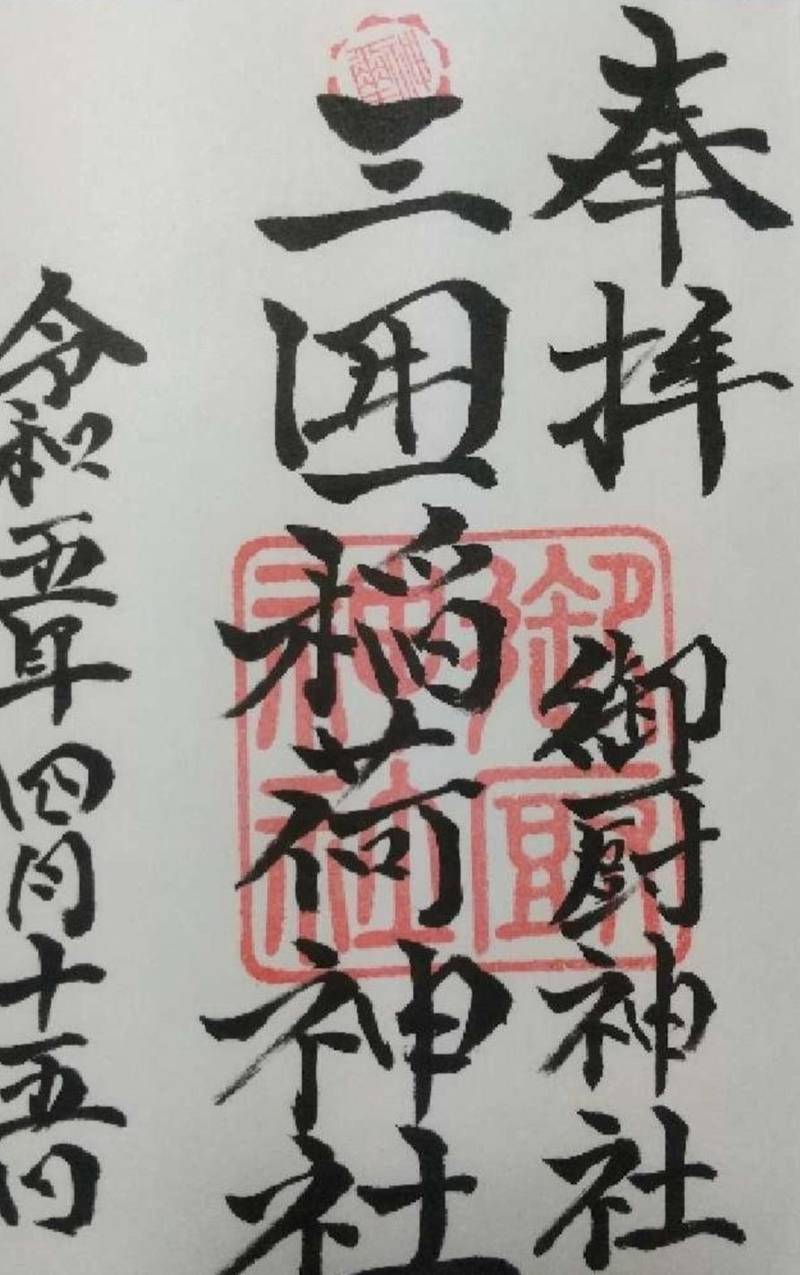 奉拝 御厨神社
三囲稲荷神社
令和五年四月十五日